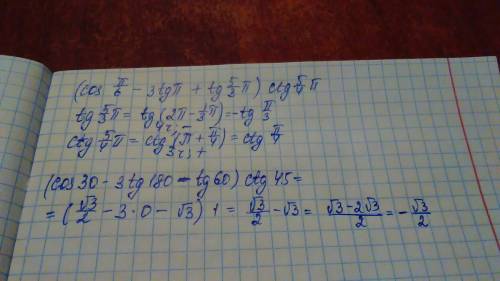 (cos π/6 - 3tgπ + tg 5/3 π) ctg 5/4 π
tg 5/3 π = tg (2π - 1/3 π) = -tg π/3
4ч, -
ctg 5/4 π = ctg (π + π/4) = ctg π/4
3ч, +
(cos 30 - 3 tg 180 - tg 60) ctg 45 =
= (√3/2 - 3·0 - √3) 1 = √3/2 - √3 = (√3 - 2√3)/2 = -√3/2